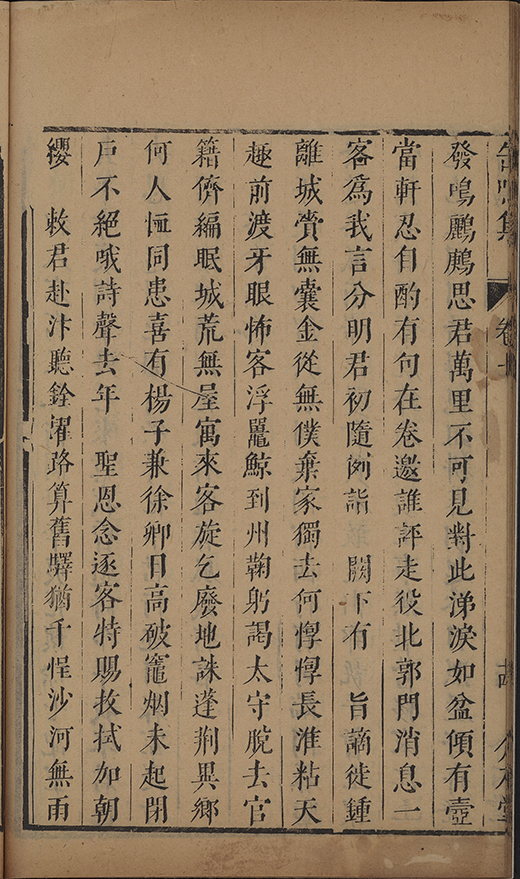 缶鳴集 卷十
發鳴鷓鴣思君萬里不可見對此涕淚如盆傾有壼
當軒忍自酌有句在卷邀誰評走役北郭門消息一
客爲我言分明君初隨例詣 闕下有 旨謫徙鍾
離城賫無囊金從無僕棄家獨去何惸惸長淮粘天
趣前渡牙眼怖客浮鼉鯨到州鞠躬謁太守脫去官
籍儕編眠城荒無屋寓來客旋乞廢地誅蓬荆異鄉
何人恤同患喜有楊子兼徐卿日高破竈烟未起閉
戸不絕哦詩聲去年 聖恩念逐客特賜抆拭加朝
纓 敕君赴汴聽銓濯路算舊驛猶千悜沙河無雨